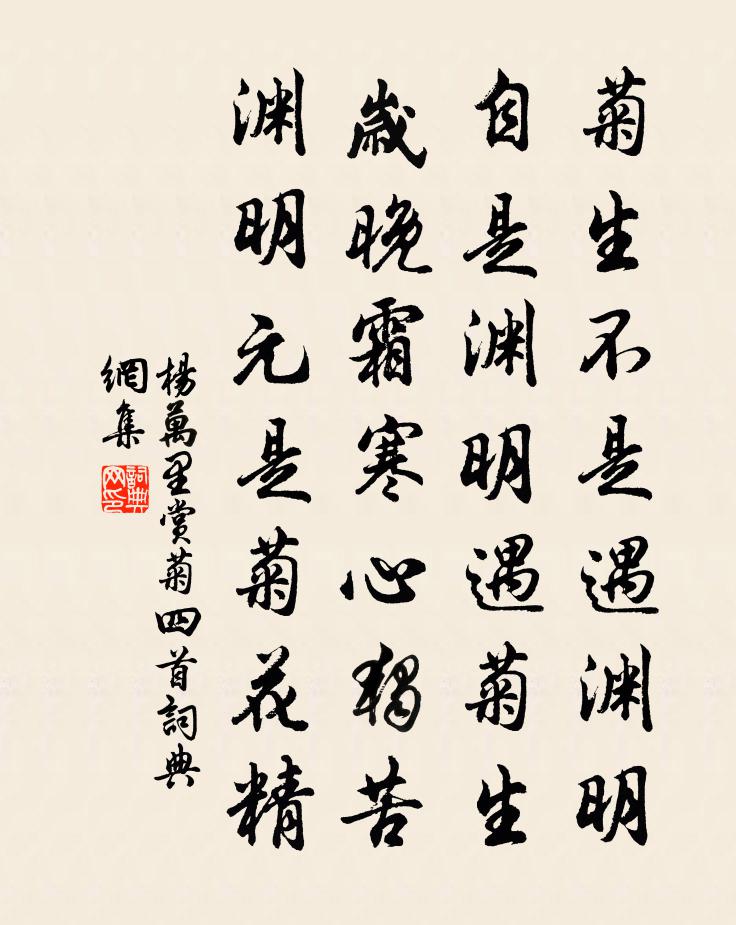 菊生不是遇渊明
自是渊明遇菊生
歳晚霜寒心獨苦
渊明元是菊花精
楊萬里賞菊四首詞典
網集
詞典
网印